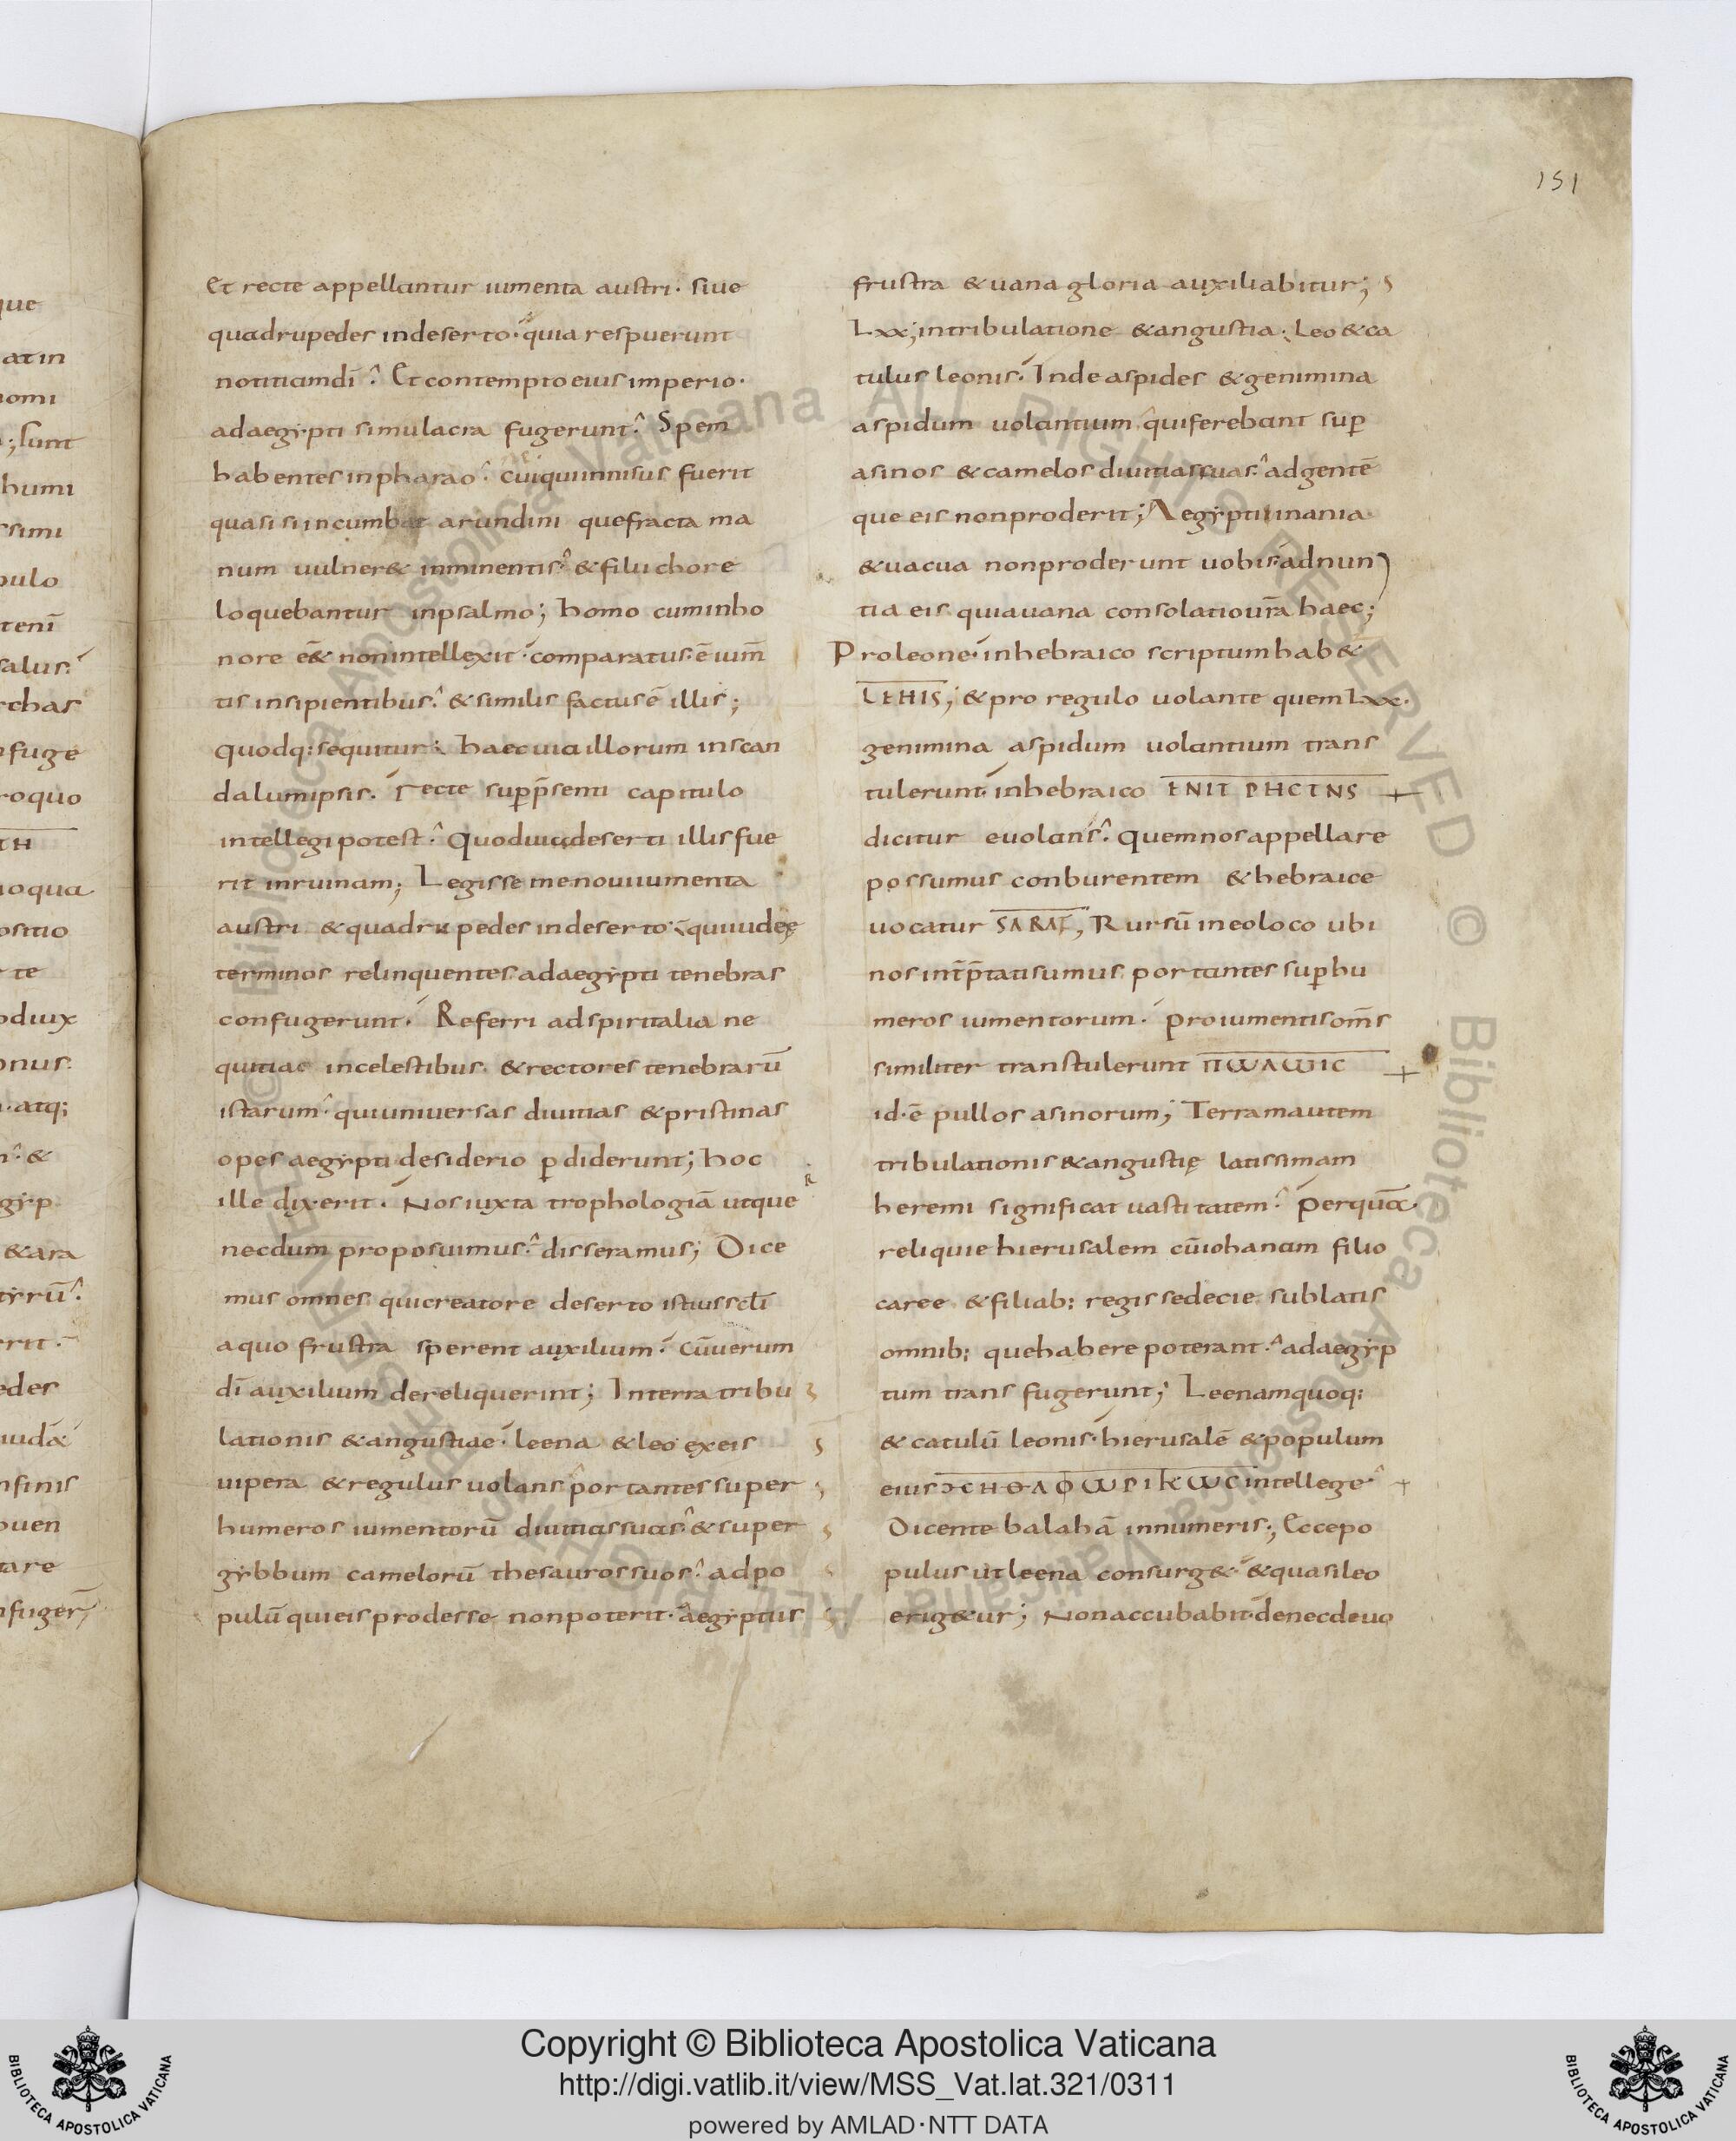 151
Et recte appellantur iumenta austri. siue
quadrupedes indeserto. quia respuerunt
notitiamdī. Et contempto eius imperio.
adaegypti simulacra fugerunt. Spem
habentes inpharao. cuiquiinnisus fuerit
quasi siincumbat arundini quefracta ma
num uulner& inminentis. & filii chore
loquebantur inpsalmo; homo cuminho
nore ē& nonintellexit. comparatus ē ium̄
tis insipientibus. & similis factus ē illis;
quodq: sequitur; haec uia illorum inscan
dalumipsis. recte supp̄senti capitulo
intellegi potest. Quoduia deserti illis fue
rit inruinam; Legisse menoui iumenta
austri & quadrupedes indeserto. quiiudeę
terminos relinquentes adaegypti tenebras
confugerunt. Referri adspiritalia ne
quitiae incelestibus. & rectores tenebrarū
istarum. quiuniuersas diuitias & pristinas
opes aegypti desiderio p̱diderunt; hoc
ille dixerit. Nos iuxta trophologiā utque
necdum proposuimus. disseramus; Dice
mus omnes quicreatore deserto istius sc̄li
aquo frustra sperent auxilium. cūuerum
dī auxilium dereliquerint; Interra tribu
lationis & angustiae. leena & leo exeis
uipera & regulus uolans portantes super
humeros iumentorū diuitias suas. & super
gybbum camelorū thesauros suos. adpo
pulū quieis prodesse nonpoterit. aegyptus
frustra & uana gloria auxiliabitur;
Lxx; intribulatione & angustia. Leo & ca
tulus leonis. Inde aspides & genimina
aspidum uolantium quiferebant sup̱
asinos & camelos diuitias suas. adgentē
que eis nonproderit; Aegyptii inania
& uacua nonproderunt uobis. adnun
tia eis quiauana consolatio ur̄a haec;
Proleone. inhebraico scriptum hab&
LEHIS; & pro regulo uolante quem Lxx.
genimina aspidum uolantium trans
tulerunt. inhebraico ENIT PHCTNS
dicitur euolans. quemnos appellare
possumus conburentem & hebraice
uocatur SARAF; Rursū ineoloco ubi
nos int̄p̄tati sumus portantes sup̱hu
meros iumentorum. Pro iumentis om̄s
similiter transtulerunt ΠΩΛΩΙC
id. ē pullos asinorum; Terramautem
tribulationis & angustię latissimam
heremi significat uastitatem. Perquā
reliquie hierusalem cū iohanam filio
caree & filiab: regis sedecie sublatis
omnib: quehabere poterant. adaegyp
tum trans fugerunt; Leenamquoq:
& catulū leonis. hierusalē & populum
eius ϽCΗΘΛΦΩΡΙΚΩC intellege
Dicente balahā innumeris; Ecce po
pulus ut leena consurg& & quasileo
erig&ur; Nonaccubabit. denecdeuo
Copyright © Biblioteca Apostolica Vaticana
http://digi.vatlib.it/view/MSS_Vat.lat.321/0311
powered by AMLAD·NTT DATA
BIBLIOTECA APOSTOLICA VATICANA
BIBLIOTECA APOSTOLICA VATICANA